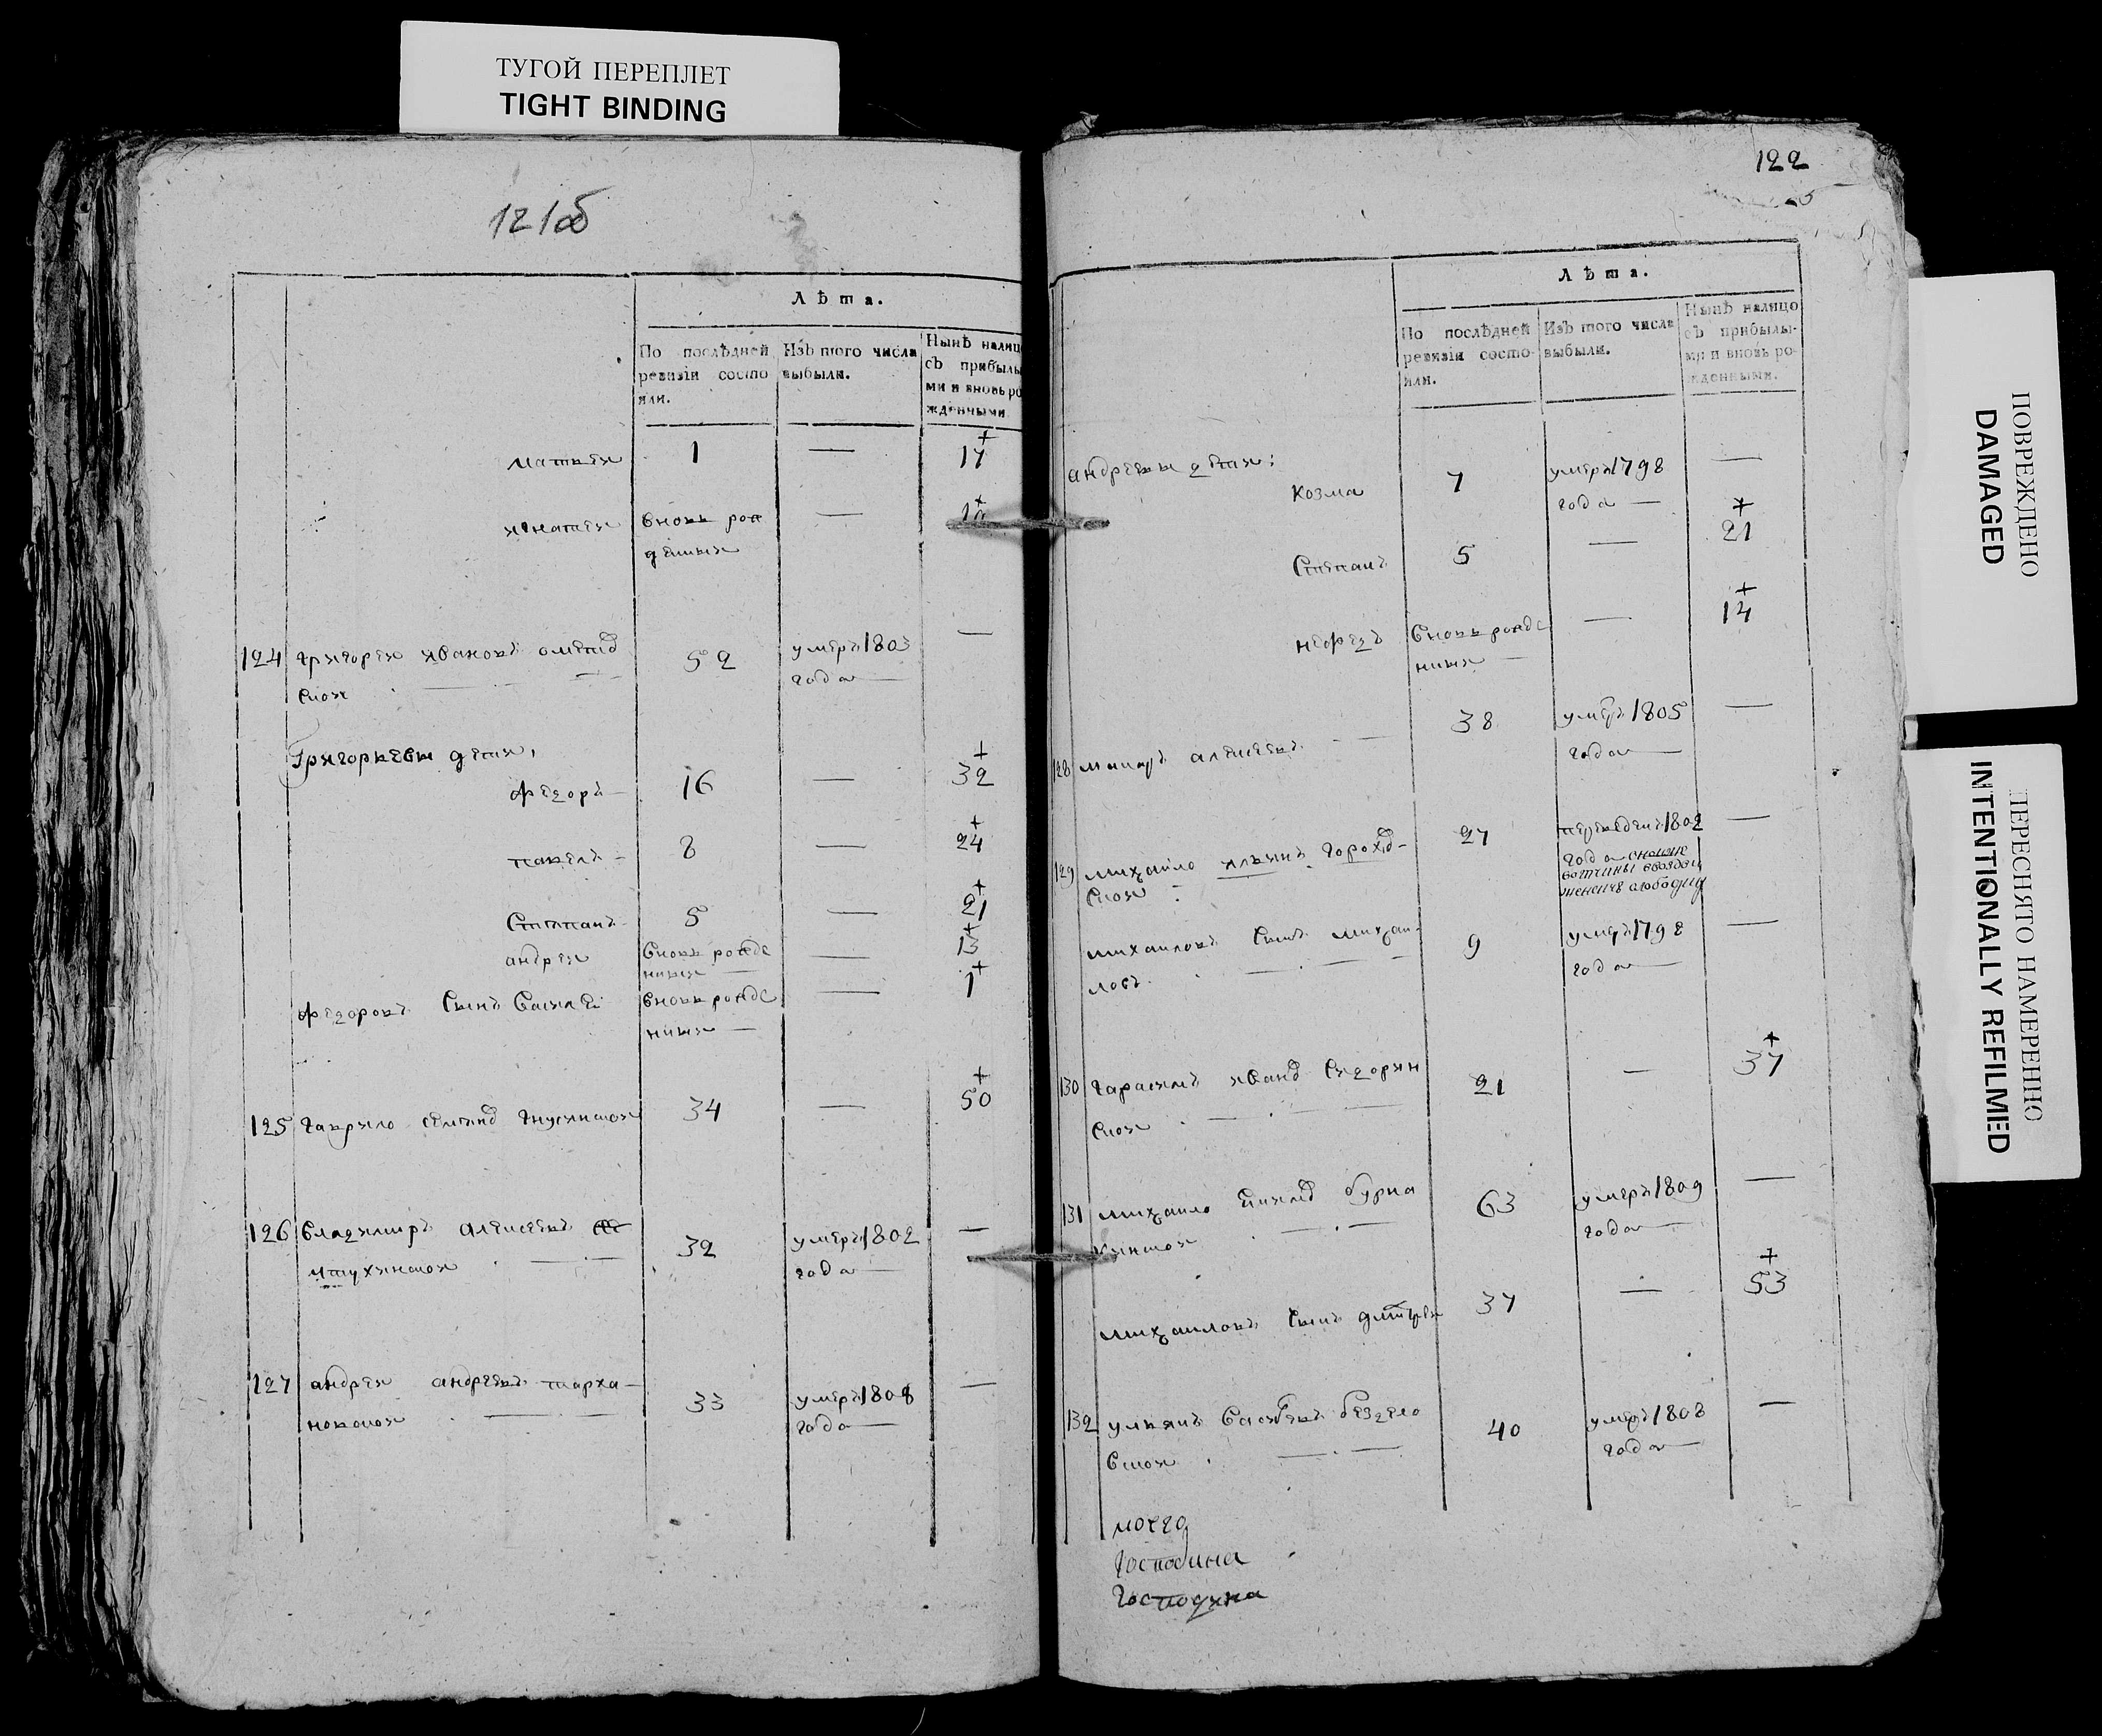 ТУГОЙ ПЕРЕПЛЕТ
TIGHT BINDING
121об
Лѣта.
По послѣдней ревизіи состояли.
Изъ того числа выбыли.
Нынѣ налицо съ прибылыми и вновь рожденными
матвеи 1 — 17
игнатеи вновь рож — 12
денныи
124 григореи ивановъ 52 умеръ 1803 —
скои года —
Григорьевы дети,
федоръ — 16 — 32
павелъ — 8 — 24
Степанъ 5 — 21
андреи вновь рожде — 13
ныи —
федоровъ сынъ василеи вновь рожде — 1
ныи —
125 гаврило семенов 34 — 50
126 владимиръ алексеевъ 32 умеръ 1802 —
года —
127 андреи андреевъ тарха- 33 умеръ 1808 —
новскои года —
122
Лѣта.
По послѣдней ревизіи состояли.
Изъ того числа выбыли.
Нынѣ налицо съ прибылыми и вновь рожденными.
андреевы дети:
козма 7 умеръ 1798 —
года —
Степанъ 5 — 21
нефедъ вновь рожде — 14
ныи —
128 макаръ алексеевъ — 38 умеръ 1805 —
года —
129 михаило ильинъ горохов- 27 переведенъ 1802 —
скои года
вотчины
слободу
михаиловъ сынъ михаи- 9 умеръ 1798 —
лосъ. года —
130 гарасимъ иванов сидорин 21 — 37
скои
131 михаило бурна 63 умеръ 1809 —
кинскои года —
михаиловъ сынъ дмитреи 37 — 53
132 ульянъ васильевъ 40 умеръ 1808 —
скои года —
моего
господина
господина
ПОВРЕЖДЕНО
DAMAGED
ПЕРЕСНЯТО НАМЕРЕННО
INTENTIONALLY REFILMED